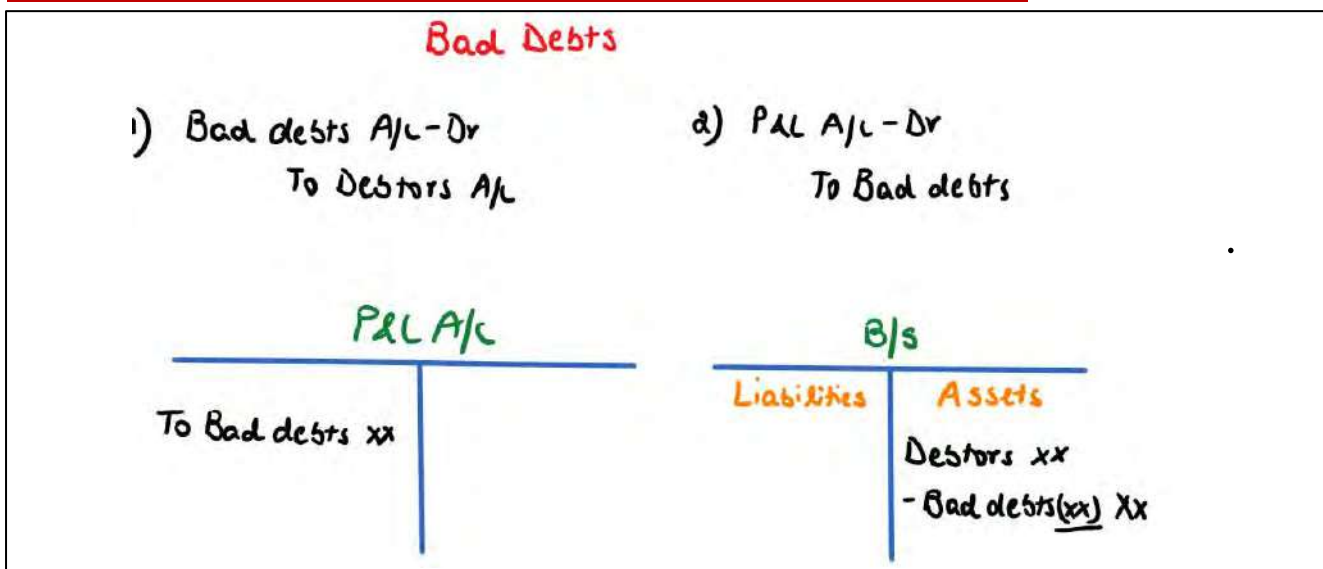 Bad Debts
1) Bad debts A/c - Dr
To Debtors A/c
2) P&L A/c - Dr
To Bad debts
P&L A/c
To Bad debts xx
B/s
Liabilities
Assets
Debtors xx
- Bad debts (xx) Xx